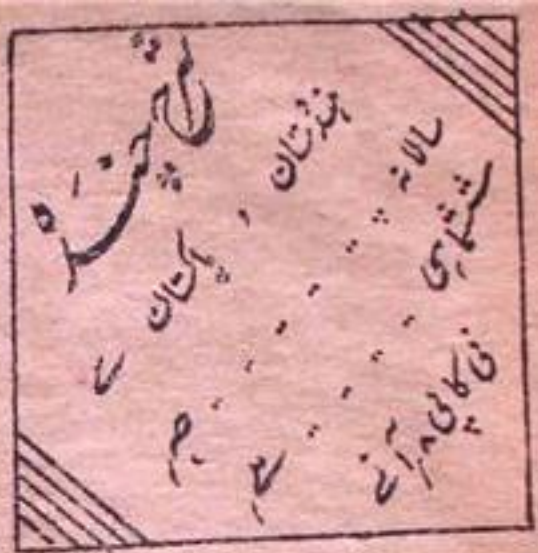 شرح چندہ
ہندوستان ، پاکستان سے
سالانہ ......
ششماہی ......
فی کاپی ۸ آنے